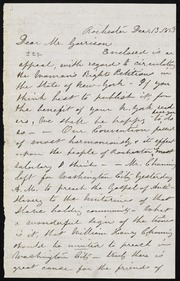 Rochester Dec 13. 1853
Dear Mr. Garrison
Enclosed is an
appeal with regard to circulating
the Woman's Rights Petitions in
the State of New-York. If you
think best to publish it for
the benefit of your N. York read
ers, we shall be happy to
— Our Convention passed
most harmoniously &
upon the people of Rochester, most
I think — Mr. Channing
left for Washington City yesterday
A.M. to preach the Gospel of Anti-
Slavery to the Unitarians of that
Slave holding community — What
a wonderful sign of the times
is it, that William Henry Channing
should be invited to preach in
Washington City — Truly there is
great cause for the friends of